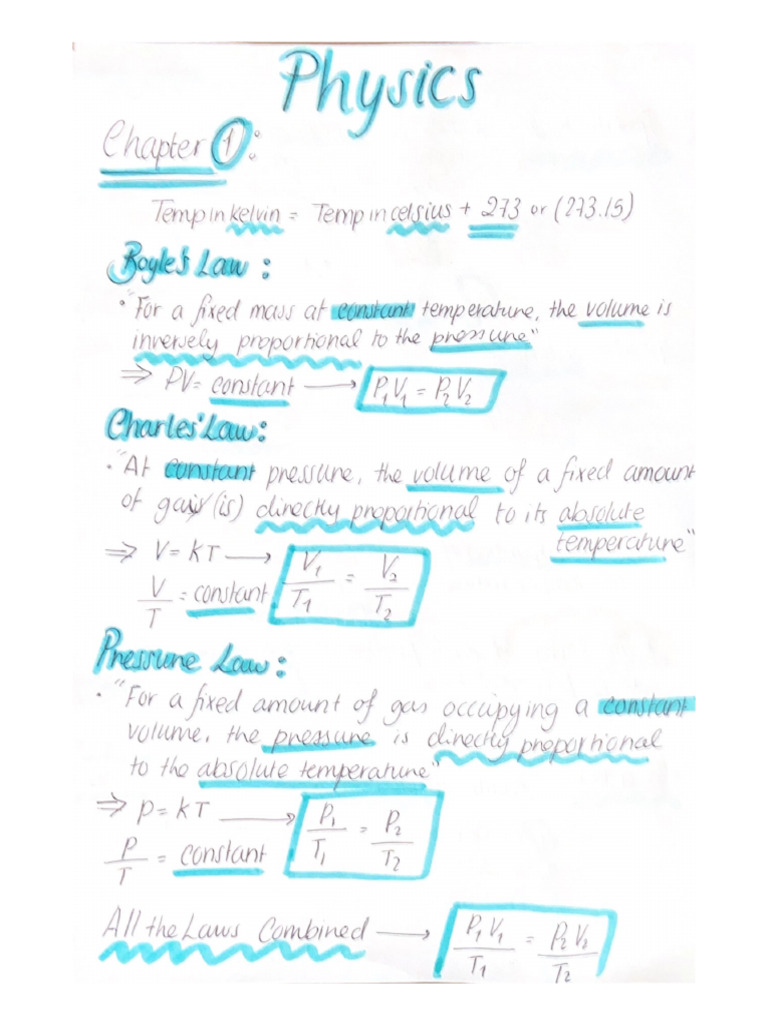 Physics
Chapter 1:
Temp in kelvin = Temp in celsius + 273 or (273.15)
Boyle's Law :
• "For a fixed mass at constant temperature, the volume is
inversely proportional to the pressure"
⇒ PV = constant → P₁V₁ = P₂V₂
Charles' Law:
• "At constant pressure, the volume of a fixed amount
of gas (is) directly proportional to its absolute
temperature"
⇒ V = KT → V₁/T₁ = V₂/T₂
V/T = constant
Pressure Law:
• "For a fixed amount of gas occupying a constant
volume, the pressure is directly proportional
to the absolute temperature"
⇒ P = KT → P₁/T₁ = P₂/T₂
P/T = constant
All the Laws Combined → P₁V₁/T₁ = P₂V₂/T₂